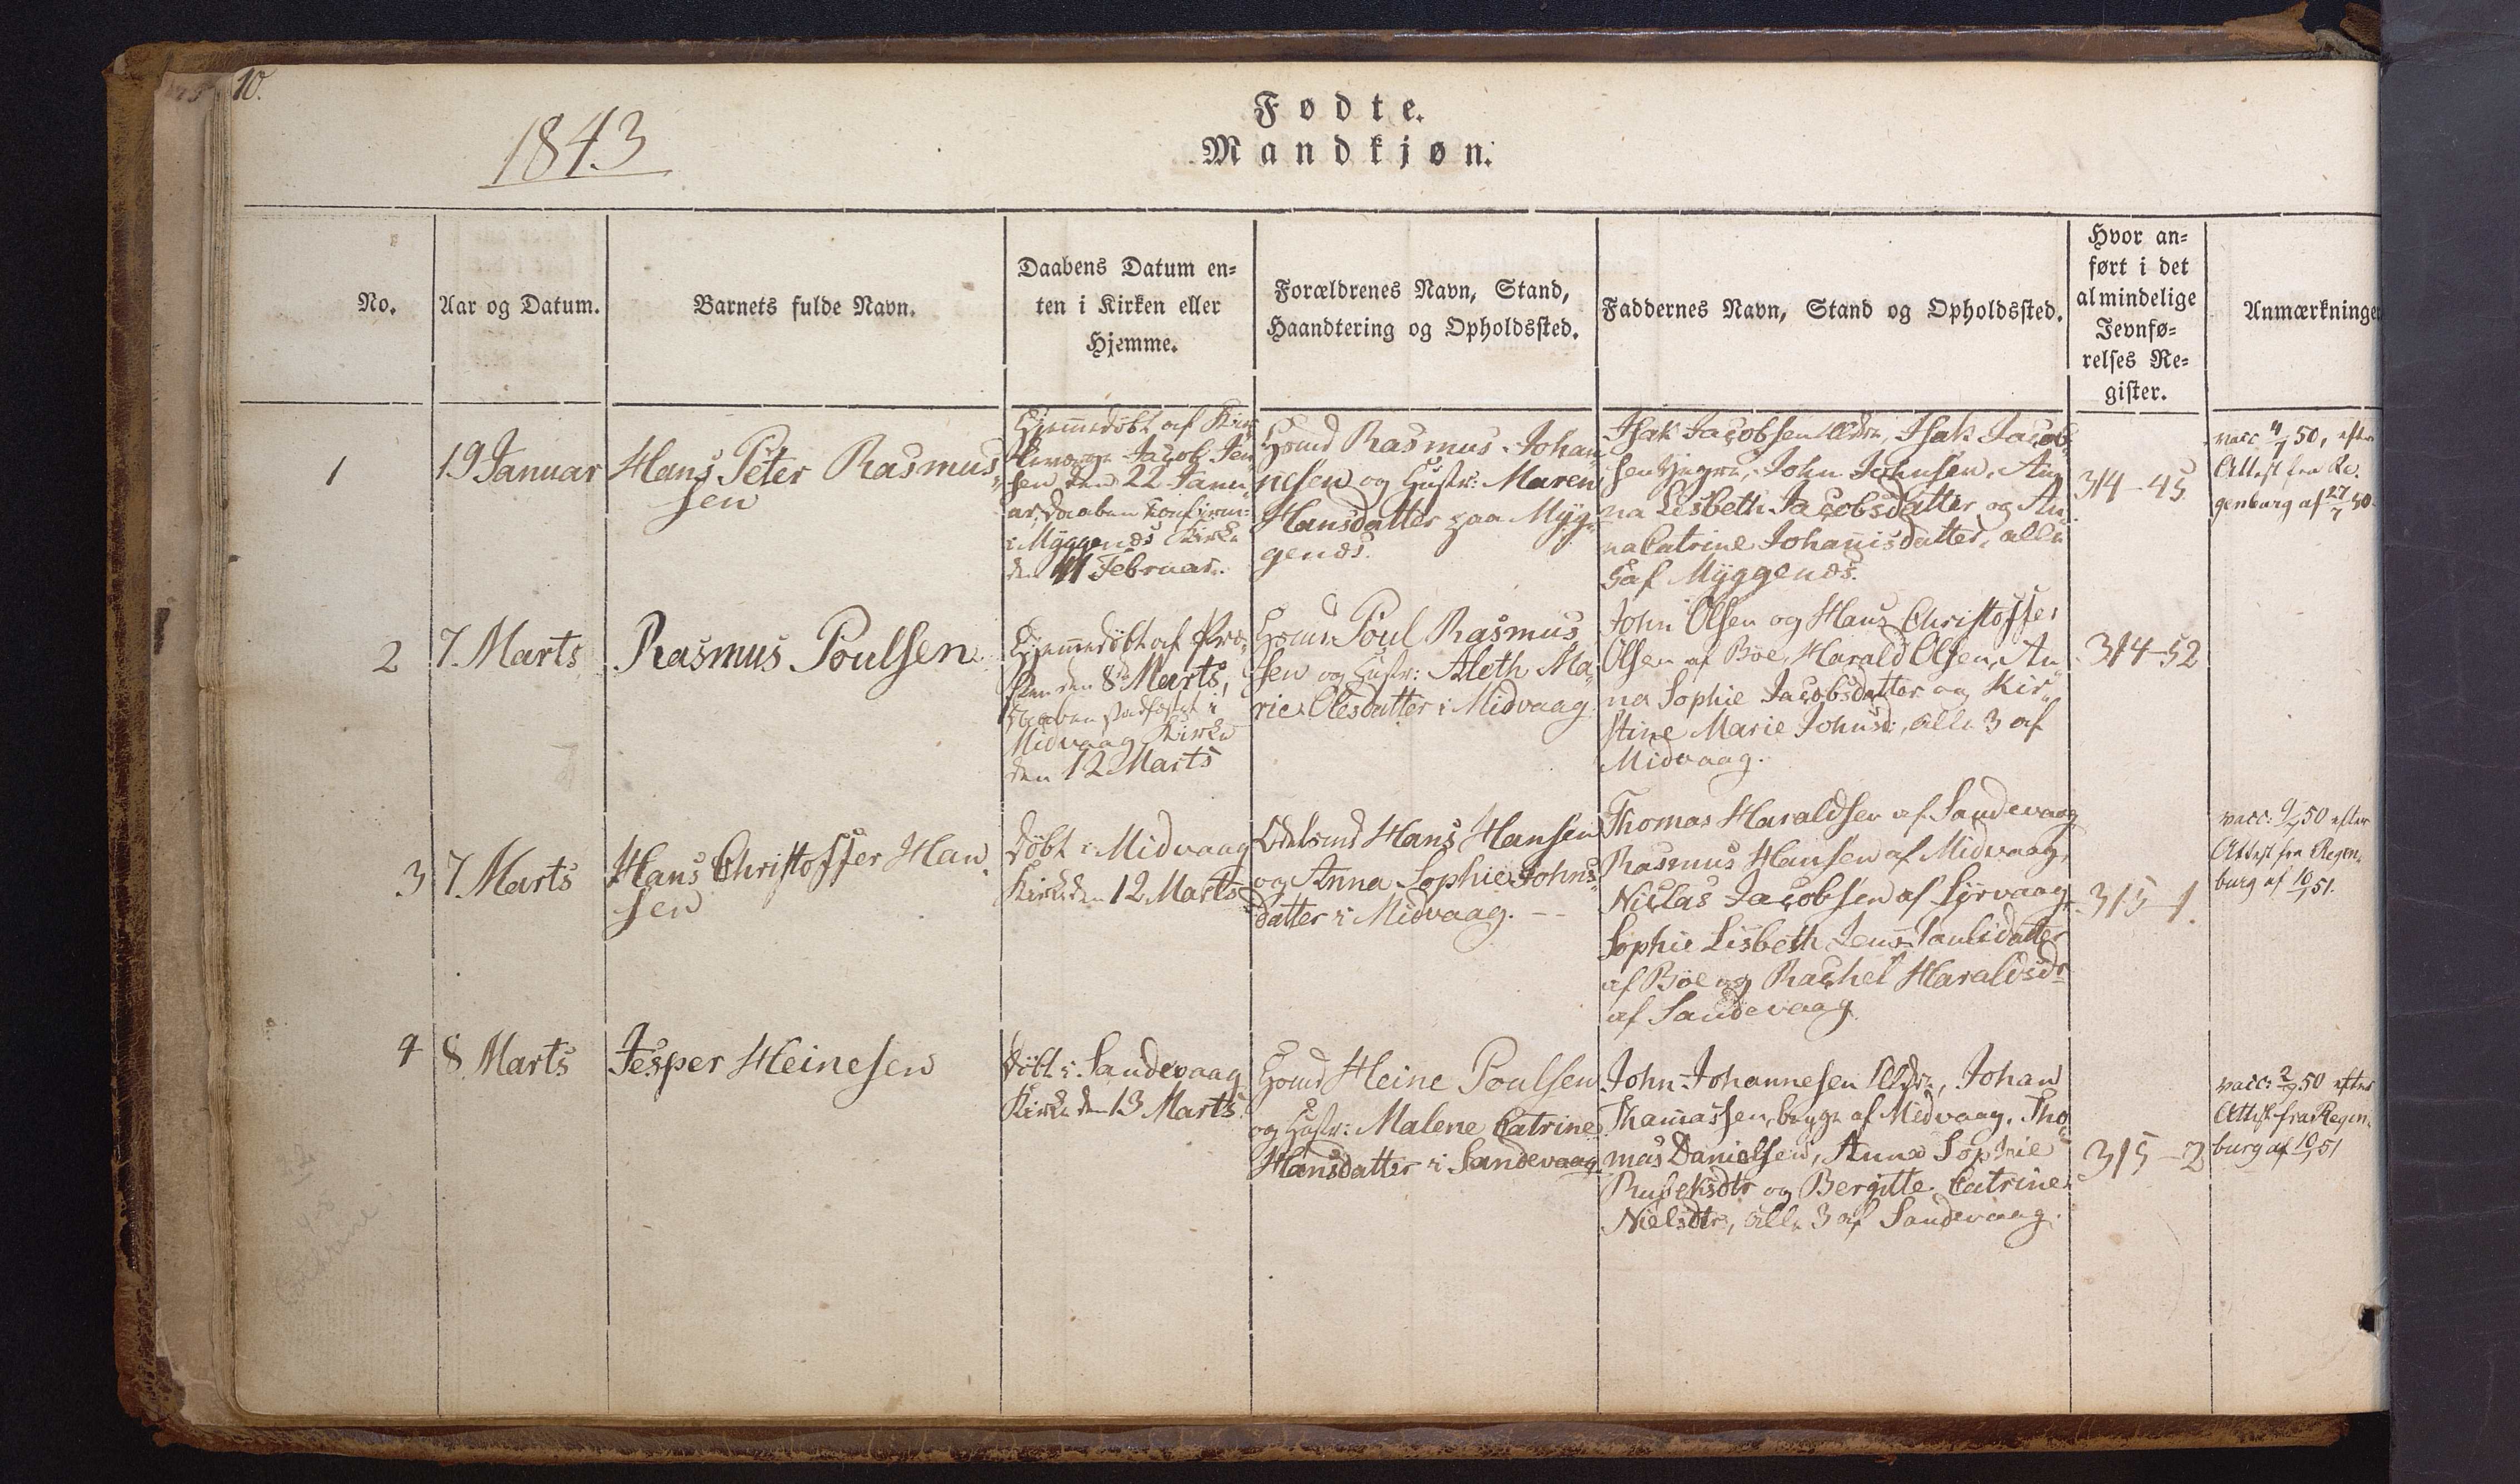 10.
1843
Fødte.
Mandkjøn.
No.
Aar og Datum.
Barnets fulde Navn.
Daabens Datum en=
ten i Kirken eller
Hjemme.
Forældrenes Navn, Stand,
Haandtering og Opholdssted.
Faddernes Navn, Stand og Opholdssted.
Hvor an=
ført i det
almindelige
Jevnfø=
relses Re=
gister.
Anmærkninge
1
19 Januar
Hans Peter Rasmus
sen
Hjemmedöbt af
Jacob Jen
sen den 22 Janu
ar, Daaben
i Myggenæs Kirke
den 11 Februar.
Huusmd Rasmus Johan
nesen og Hustr: Maren
Hansdatter paa Myg
genæs.
Isak Jacobsen Ældre, Isak Jacob
sen Yngre, John Johnsen, An
na Lisbeth Jacobsdatter og An
na Catrine Johannisdatter, alle
5 af Myggenæs.
314-45
vacc 4/7 50, efter
Attest fra Re
genburg af 27/7 50.
2
7. Marts
Rasmus Poulsen
Hjemmedöbt af Præ
sten den 8de Marts,
Daaben stadfæstet i
Midvaag Kirke
den 12 Marts
Huusmd Poul Rasmus
sen og Hustr: Aleth Ma
rie Olesdatter i Midvaag
John Olsen og Hans Christoffer
Olsen af Böe, Harald Olsen, An
na Sophie Jacobsdatter og Kir
stine Marie Johnsd:, alle 3 af
Midvaag.
314-52
3
7. Marts
Hans Christoffer Han
sen
Döbt i Midvaag
Kirke den 12 Marts
Odelsmd Hans Hansen
og Anna Sophie Johns
datter i Midvaag.
Thomas Haraldsen af Sandevaag
Rasmus Hansen af Midvaag,
Niclas Jacobsen af Sörvaag,
Sophie Lisbeth Jens Paulsdatter
af Böe og Rachel Haraldsdr
af Sandevaag
315-1.
vacc: 50 efter
Attest fra Regen
burg af 10/1 51.
4
8. Marts
Jesper Heinesen
Döbt i Sandevaag
Kirke den 13 Marts.
Huusmd Heine Poulsen
og Hustr: Malene Catrine
Hansdatter i Sandevaag
John Johannesen Ældre, Johan
Thomassen, begge af Midvaag, Tho
mas Danielsen, Anna Sophie
og Bergitte Catrine
Nielsdtr, alle 3 af Sandevaag.
315-2
vacc: 50 efter
Attest fra Regen
burg af 10/1 51